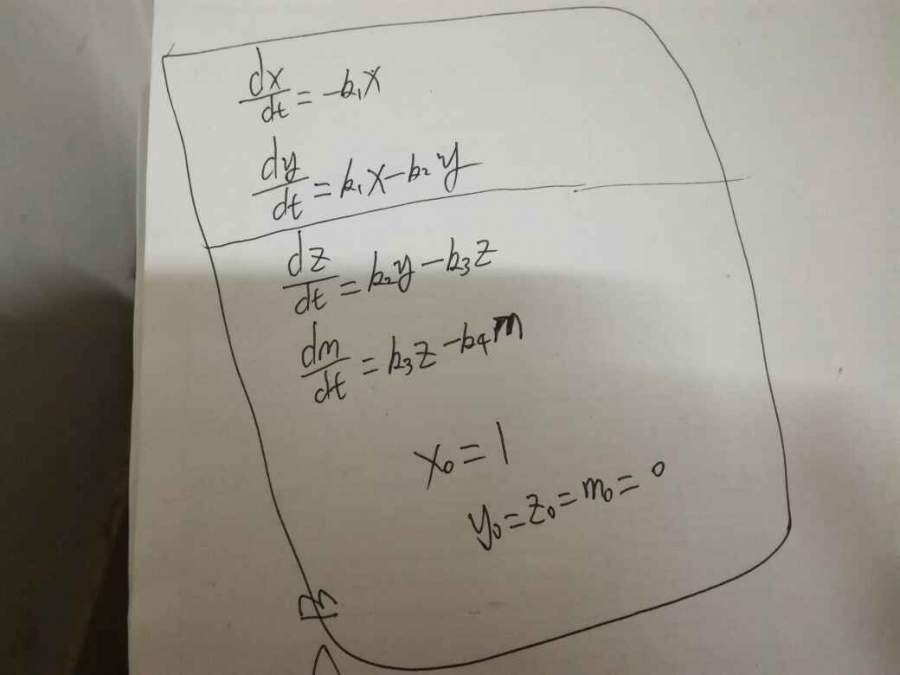 dx/dt = -k₁x
dy/dt = k₁x - k₂y
dz/dt = k₂y - k₃z
dm/dt = k₃z - k₄m
x₀ = 1
y₀ = z₀ = m₀ = 0